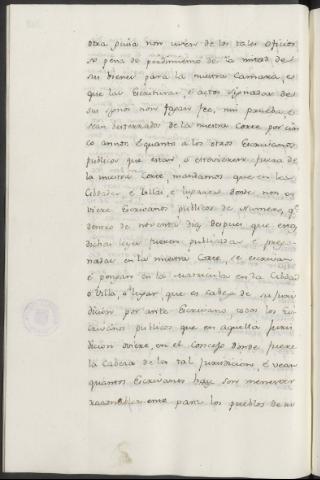 otra guisa non usen de los tales oficios
so pena de perdimiento de la mitad de
sus bienes para la nuestra Camara, e
que las Escrituras, e actos signados de
sus signos non fagan fee, nin prueba, e
sean desterrados de la nuestra Corte por cin
co annos, e quanto a los otros Escrivanos
publicos que estan, o estovieren fuera de
la nuestra Corte, mandamos que en las
Cibdades, e Villas, e lugares donde non o
viere Escrivanos publicos de Numero, qe
dentro de noventa dias despues que estas
dichas leyes fueren publicadas, e prego
nadas en la nuestra Corte, se escrivan
e pongan en la matricula en la Cibdad
o Villa, o lugar, que es cabeza de su juris
dicion, por ante Escrivano, todos los Es
crivanos publicos que en aquella juris
dicion oviere, en el Concejo donde fuere
la Cabeza de los tal jurisdicion, e vean
quantos Escrivanos hay son menester
razonablemente para los pueblos de su